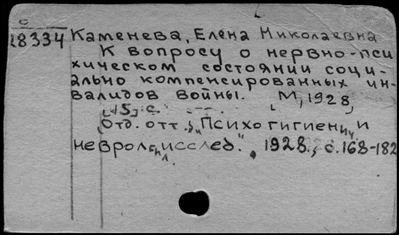 с
28334 Каменева, Елена Николаевна
К вопросу о нервно-пси
хическом состоянии соци-
ально компенсированных ин-
валидов войны. М, 1928,
15 с.
Отд. отт. "Психогигиенич. и
неврол. исслед.", 1928, с. 168-182